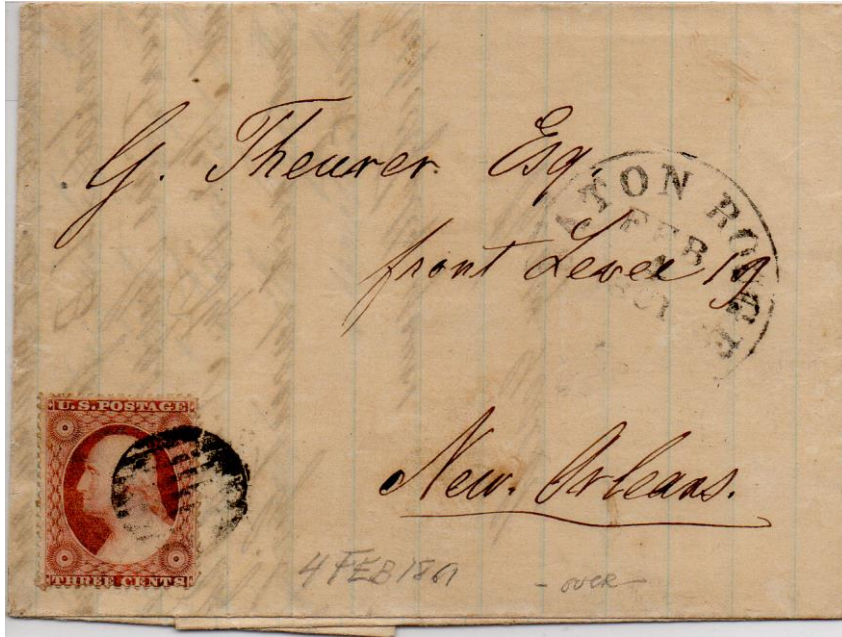 G. Theurer Esq.
front Levee 19
New. Orleans.
ATON ROUGE
FEB
4
1861
U.S.POSTAGE
THREE CENTS
4 FEB 1861
- over -